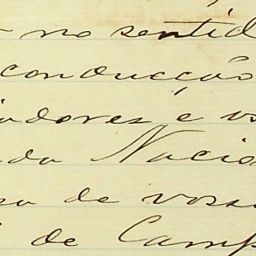 no sentid
conducção
iadores e os
da Nacio
sa de vossa
de Camp